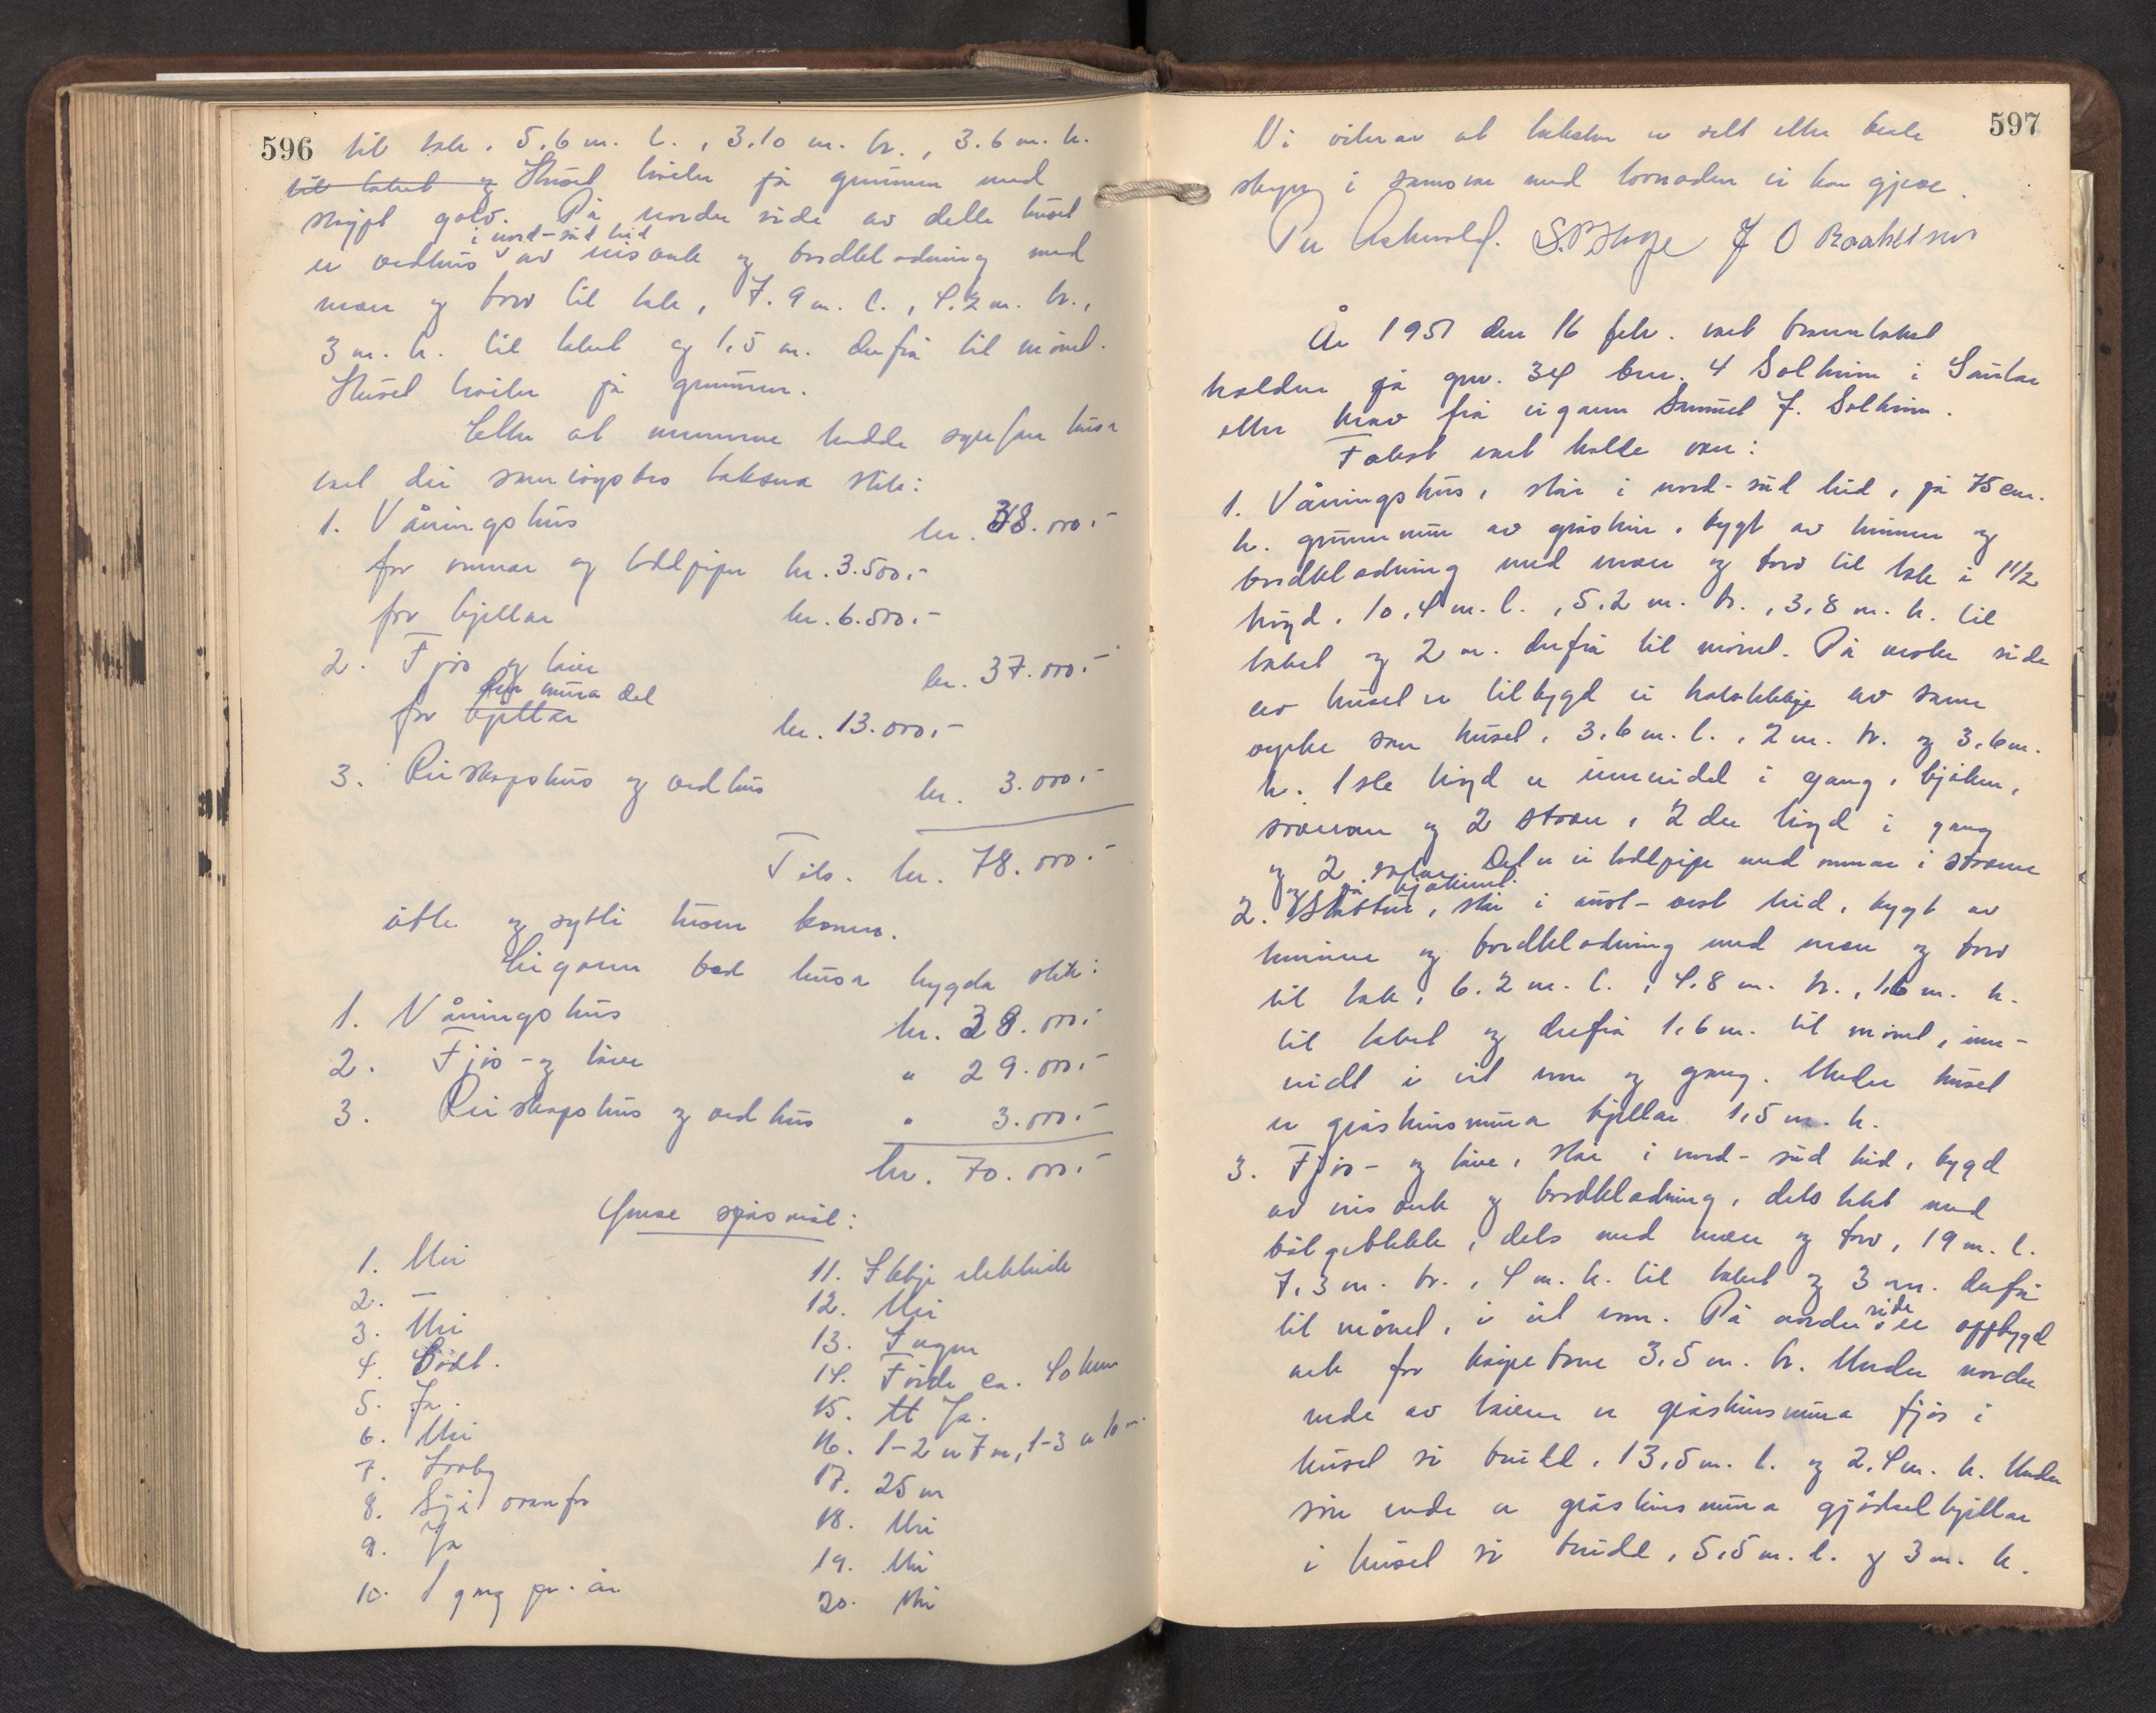 596
til tak, 5,6 m. l., 3,10 m. br., 3,6 m. h.
til taket og Huset kviler på grunnen med
støypt golv. På nordre side av dette huset
i nord-sud leid
er vedhus av reisverk og bordkledning med
næver og torv til tak, 7.9 m. l., 4.2 m. br.,
3 m. h. til taket og 1,5 m. derfrå til mönet.
Huset kviler på grunnen.
Etter at nemnerne hadde synfare husa
vart dei samrøystes taksera slik:
1. Våningshus kr. 38.000.-
for omnar og loddpipe kr. 3.500.-
for kjellar kr. 6.500.-
2. Fjøs og løe kr. 37.000.-
den mura del
for kjellar kr. 13.000.-
3. Reiskapshus og vedhus kr. 3.000.-
Tils. kr. 78.000.-
åtte og sytti tusen kroner.
Eigaren bad husa trygda slik:
1. Våningshus kr. 38.000.-
2. Fjøs- og løe " 29.000.-
3. Reiskapshus og vedhus " 3.000.-
kr. 70.000.-
Ymse spørsmål:
1. Nei
2. —
3. Nei
4. Godt.
5. Ja.
6. Nei
7.
8. Sjå ovanfor
9. Ja
10. 1 gang pr. år
11. Ikkje elektrisk
12. Nei
13. Ingen
14. Förde ca. 40 km
15. Ja.
16. 1-2 er 7 m, 1-3 er 10 m.
17. 25 m
18. Nei
19. Nei
20. Nei
597
Vi vitnar at taksten er sett etter beste
skjyn i samsvar med lovnaden vi har gjeve.
Per Askvold. J O
År 1951 den 16 febr. vart branntakst
halden på gnr. 34 bnr. 4 Solheim i Gaular
etter krav frå eigaren Samuel J. Solheim.
Takst vart halde over:
1. Våningshus, står i nord-sud leid, på 75 cm.
h. grunnmur av gråstein, bygt av timmer og
bordkledning med næver og torv til tak i 1 1/2
høgd, 10,4 m. l., 5,2 m. br., 3,8 m. h. til
taket og 2 m. derfrå til mönet. På vestre side
av huset er tilbygd ei kvistbygg av same
verke som huset, 3,6 m. l., 2 m. br. og 3,6 m.
h. 1ste høgd er innreidd i gang, kjøken,
soverom og 2 stover, 2dre høgd i gang
og 2 rom. Det er ei loddpipe med omnar i stovene
og på kjøkenet.
2. Eldhus, står i aust-vest leid, bygt av
timmer og bordkledning med næver og torv
til tak, 6.2 m. l., 4.8 m. br., 1,6 m. h.
til taket og derfrå 1,6 m. til mönet, inn-
reidt i eit rom og gang. Under huset
er gråsteinsmura kjellar 1,5 m. h.
3. Fjøs- og løe, står i nord-sud leid, bygd
av reisverk og bordkledning, dels tekt med
bølgeblekk, dels med næver og torv, 19 m. l.
7,3 m. br., 4 m. h. til taket og 3 m. derfrå
til mönet, i eit rom. På nordre side er oppbygd
ark for køyrebru 3,5 m. br. Under nordre
ende av løene er gråsteinsmura fjøs i
huset si breidd, 13,5 m. l. og 2,4 m. h. Under
søre ende er gråsteinsmura gjødselkjellar
i huset si breidd, 5,5 m. l. og 3 m. h.